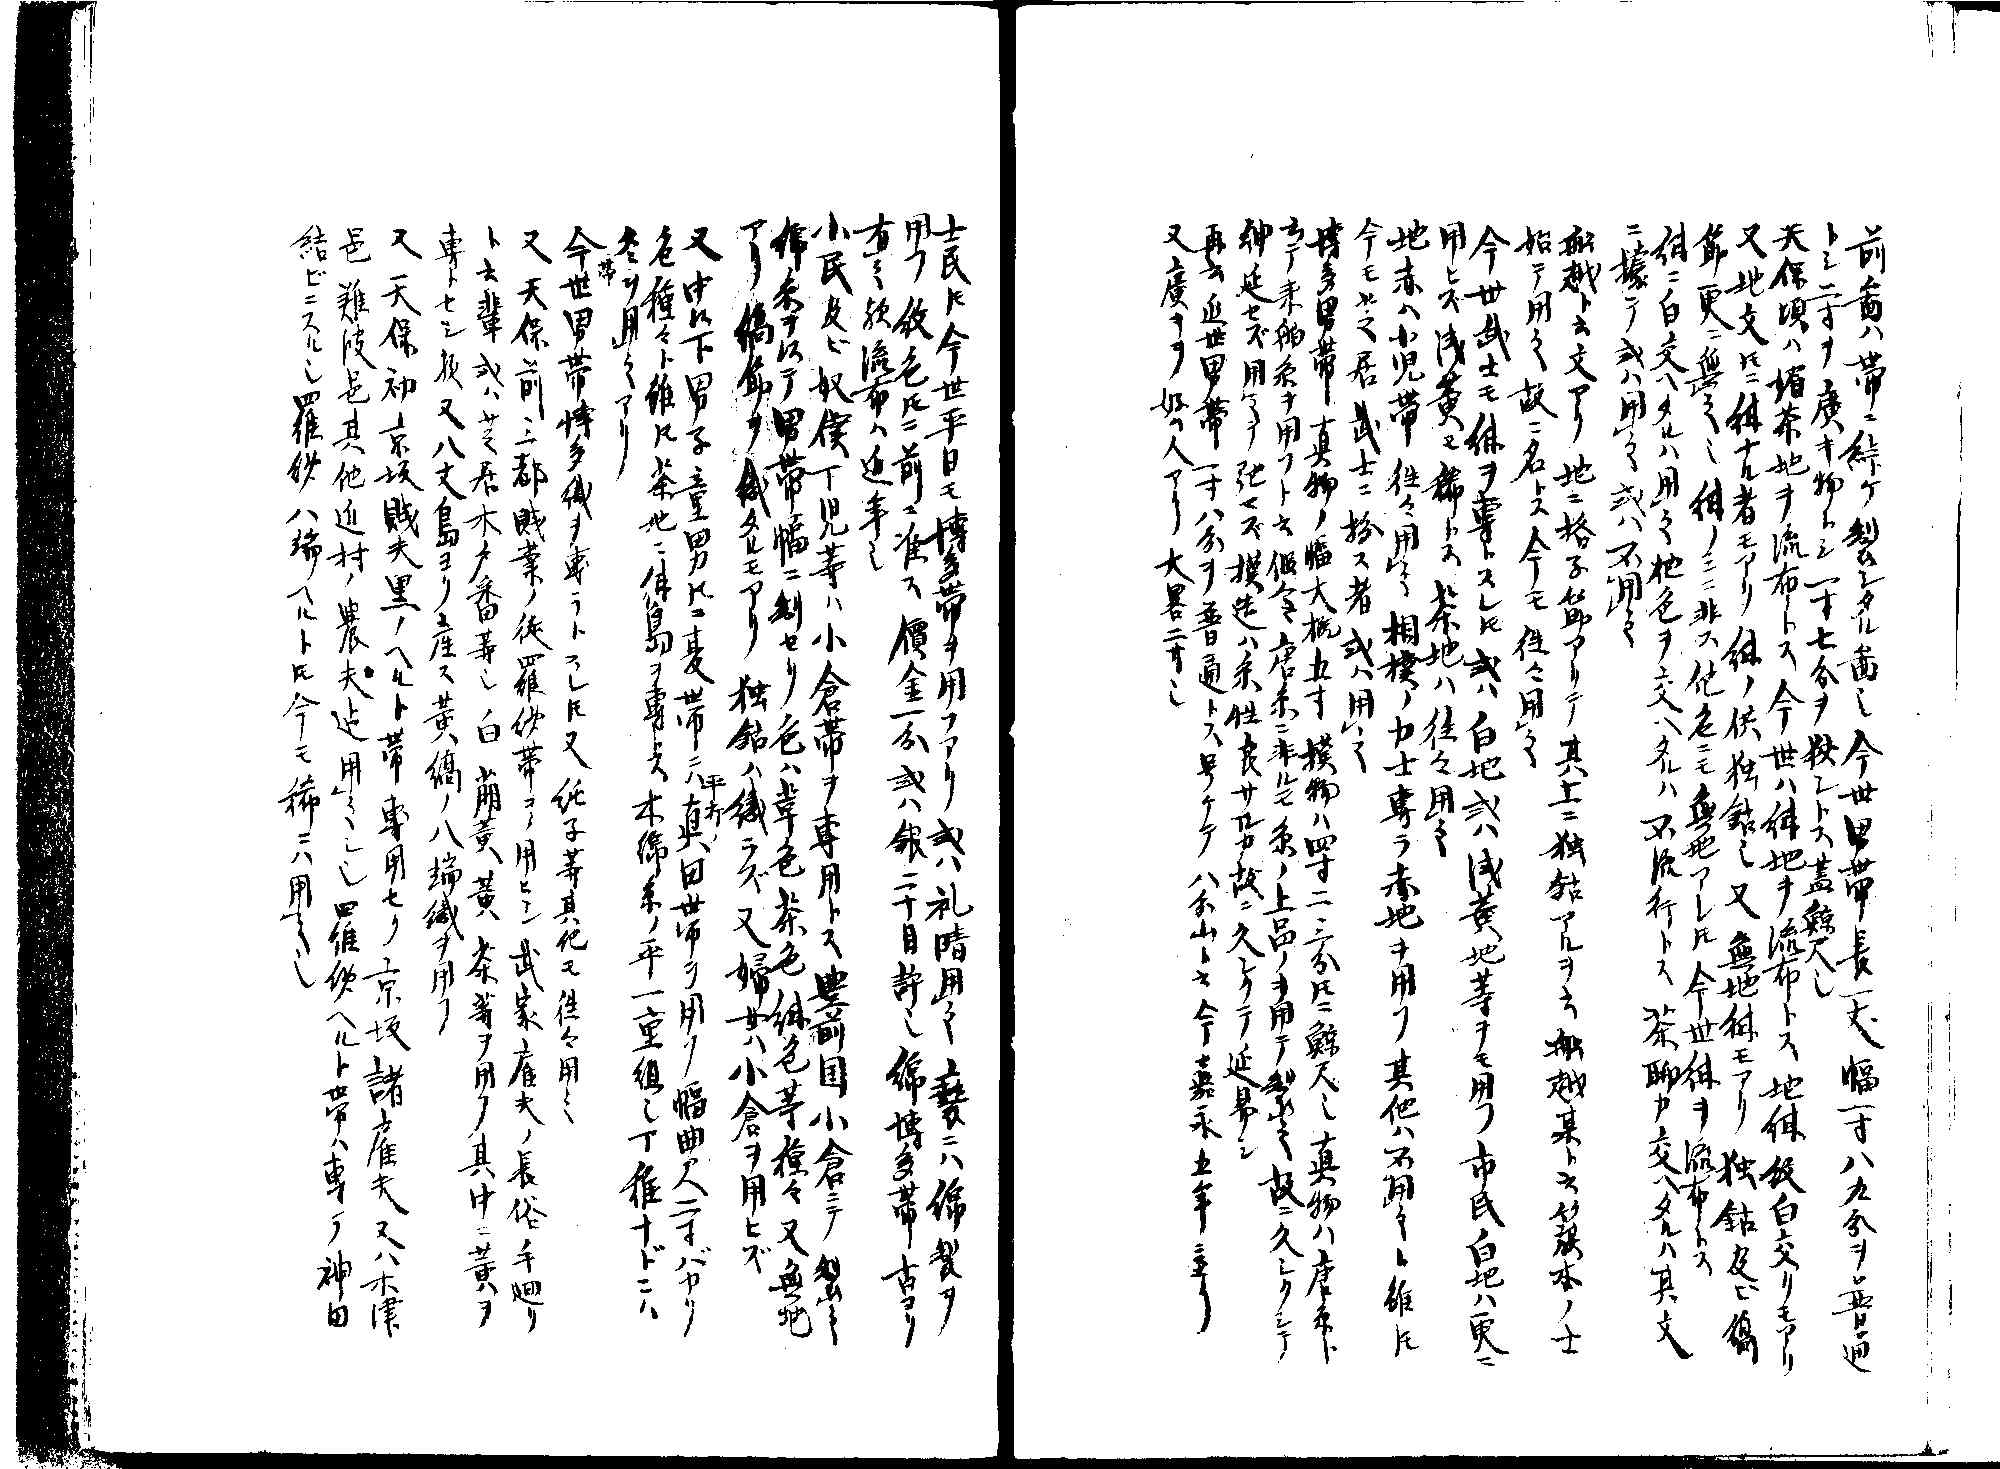 前図ハ帯ニ綜ケ製シタル図也 今世男帯長一丈 幅一寸八九分ヲ普通
トシ二寸ヲ廣キ物トシ一寸七分ヲ狭シトス蓋鯨尺也
天保頃ハ媚茶地ヲ流布トス 今世ハ紺地ヲ流布トス 地紺紋白交リモアリ
又地文トモニ紺ナル者モアリ 紺ノ伏独鈷也 又無地紺モアリ 独鈷及ビ縞
筋更ニ無之也 紺ノミニ非ス他色ニモ無地アレトモ 今世紺ヲ流布トス
紺ニ白交ヘタルハ用之 他色ヲ交ヘタルハ不流行トス 茶聊カ交ヘタルハ其文
ニ據テ或ハ用之 或ハ不用之
船越ト云文アリ 地ニ格子筋アリテ其上ニ独鈷アルヲ云 船越某ト云簱本ノ士
始テ用之 故ニ名トス 今モ往々用之
今世武士モ紺ヲ專トスレトモ 或ハ白地 或ハ浅黄地等ヲモ用フ 市民白地ハ更ニ
用ヒズ 浅黄モ稀トス 茶地ハ往々用之
地赤ハ小児帯 往々用之 相撲ノ力士專ラ赤地ヲ用フ 其他ハ不用之ト雖トモ
今モ芝居武士ニ扮ス者 或ハ用之
博多男帯 真物ノ幅大概五寸 模物ハ四寸二三分トモニ鯨尺也 真物ハ唐糸ト
云テ来舶糸ヲ用フト云 假令唐糸ニ非ルモ糸ノ上品ノヲ用テ製之 故ニ久シクシテ
伸延セズ 用ヲ強セズ 模造ハ糸性良サルカ故ニ久シクテ延易シ
再云 近世男帯一寸八分ヲ普通トス 号ケテ八分山ト云 今嘉永五年ニ至リ
又廣キヲ好ム人アリ 大畧二寸也
士民トモ今世平日モ博多帯ヲ用フアリ 或ハ礼晴用之 褻ニハ綿製ヲ
用フ 紋色トモニ前ニ准ス 價金一分或ハ銀二十目許也 綿博多帯古ヨリ
有之歟 流布ハ近年也
小民及ビ奴僕丁児等ハ小倉帯ヲ専用トス 豊前国小倉ニテ製之
綿糸ヲ以テ男帯幅ニ制セリ 色ハ韋色茶色紺色等種々 又無地
アリ 縞筋ヲ織タルモアリ 独鈷ハ織ラズ 又婦女ハ小倉ヲ用ヒズ
又中以下男子童男トモニ夏帯ニハ真田帯ヲ用フ 幅曲尺二寸バカリ
平打ノ
色種々ト雖トモ茶地ニ絣島ヲ專トス 木綿糸ノ平一重組也 丁稚ナドニハ
冬ヲ用之アリ
今世男帯博多織ヲ専ラトスレトモ又純子等其他モ往々用之
帯
又天保前 三都賎業ノ徒羅紗帯ヲ用ヒシ 武家雇夫ノ長 俗ニ手廻リ
ト云輩 或ハ芝居木戸番等也 白萠黄 黄 茶等ヲ用フ 其中ニ黄ヲ
專トセシ歟 又八丈島ヨリ産ス黄縞ノ八端織ヲ用フ
又天保初 京坂賎夫黒ノヘルト帯専用セリ 京坂諸雇夫 又ハ木津
邑 難波邑 其他近村ノ農夫迠用之也 羅紗ヘルト帯ハ専ラ神田
結ビニスル也 羅紗 八端 ヘルトトモ今モ稀ニハ用之也